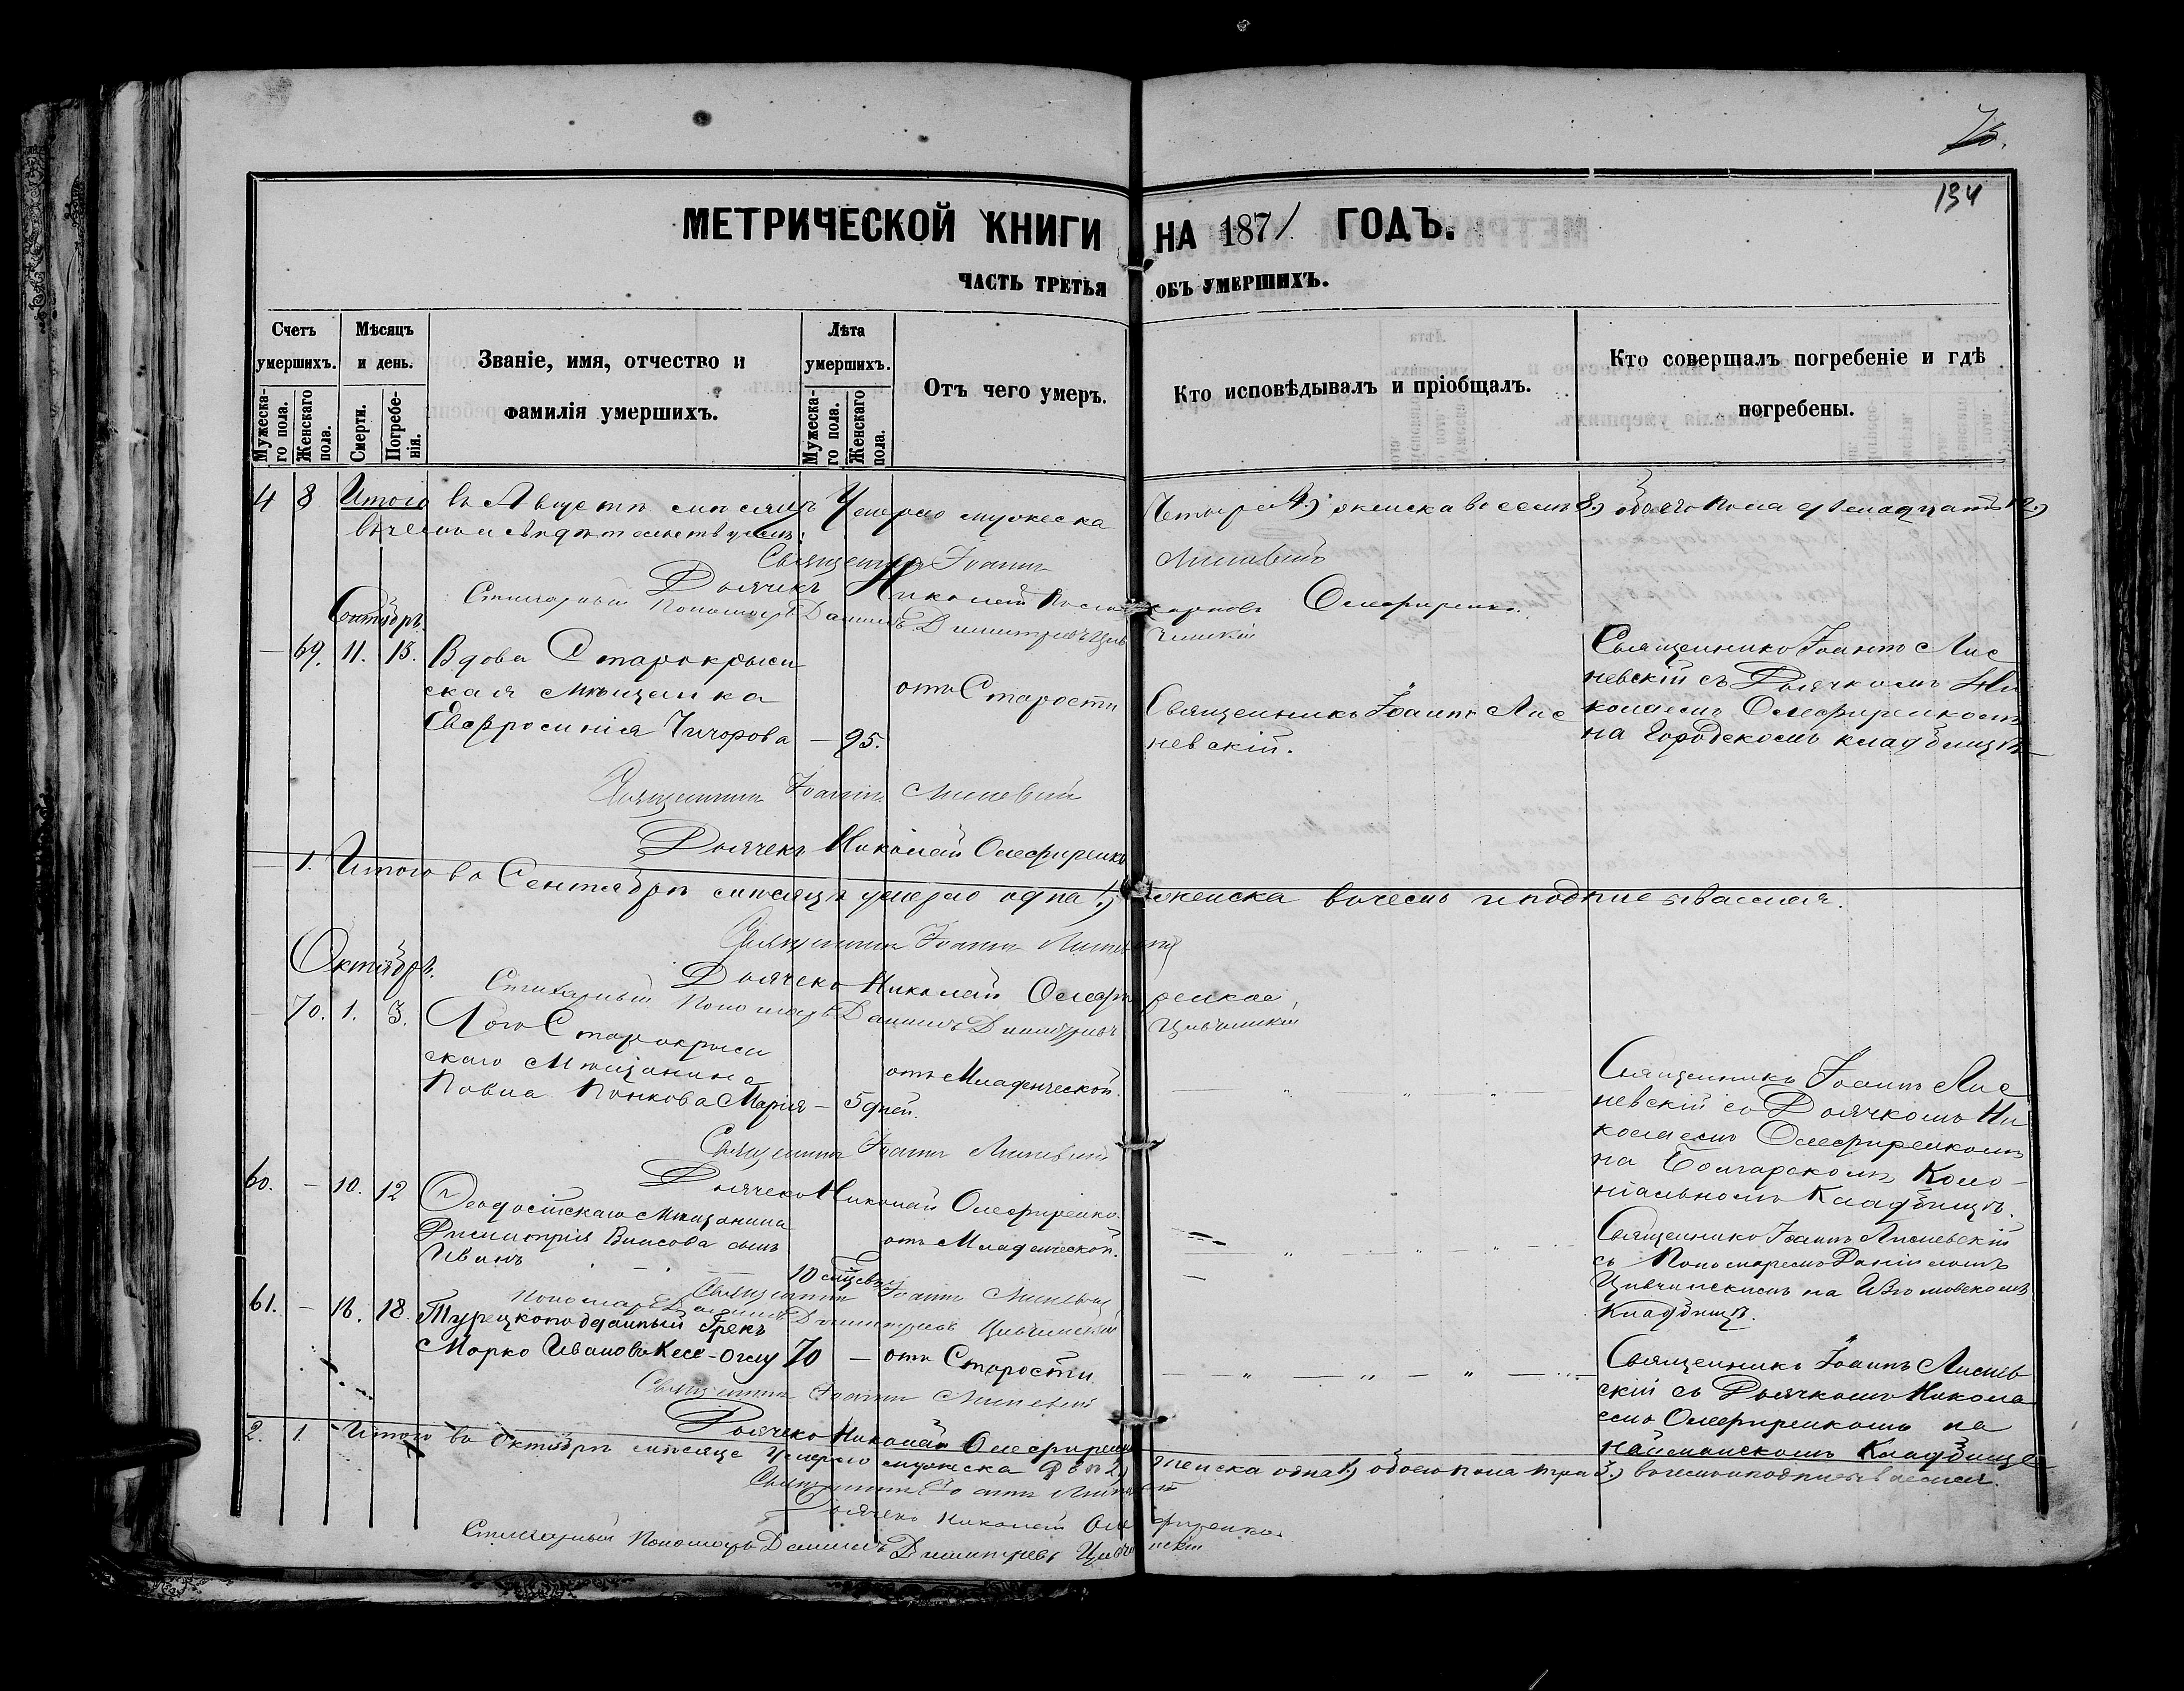 75.
134
МЕТРИЧЕСКОЙ КНИГИ НА 1871 ГОДЪ.
ЧАСТЬ ТРЕТЬЯ ОБЪ УМЕРШИХЪ.
Счетъ умершихъ.
Мужеска-го пола.
Женскаго пола.
Мѣсяцъ и день.
Смерти.
Погребе-нія.
Званіе, имя, отчество и
фамилія умершихъ.
Лѣта умершихъ.
Мужеска-го пола.
Женскаго пола.
Отъ чего умеръ.
Кто исповѣдывалъ и пріобщалъ.
Кто совершалъ погребеніе и гдѣ
погребены.
4 8 Итого въ Августѣ мѣсяцѣ Умерло мужеска Четыре 4.) женска восемь 8.) обоего пола двенадцать 12.)
въ чемъ и свидѣтельствуемъ:
Священникъ Іоаннъ Лисневскій
Дьячекъ Николай Поликарповъ Олефиренко.
Стихарный Пономарь Даніилъ Димитріевъ Цивчинскій
Сентябрь.
— 69. 11. 13. Вдова Старокрым
ская мѣщанка
Евфросинія Чичорова — 95.
отъ Старости
Священникъ Іоаннъ Лис
невскій.
Священникъ Іоаннъ Лис
невскій съ Дьячкомъ Ни
колаемъ Олефиренкомъ
на Городскомъ кладбищѣ
Священникъ Іоаннъ Лисневскій
Дьячекъ Николай Олефиренко
— 1. Итого въ Сентябрѣ мѣсяцѣ умерло одна 1.) женска въ чемъ и подписываемся.
Священникъ Іоаннъ Лисневскій
Дьячекъ Николай Олефиренко,
Стихарный Пономарь Даніилъ Димитріевъ Цивчинскій
Октябрь.
— 70. 1. 3. Старокрым
скаго Мѣщанина
Павла Понкова Марія — 5 дней.
отъ Младенческой.
Священникъ Іоаннъ Лис
невскій съ Дьячкомъ Ни
колаемъ Олефиренкомъ
на Болгарскомъ Коло-
ніальномъ Кладбищѣ.
Священникъ Іоаннъ Лисневскій
Дьячекъ Николай Олефиренко.
60. — 10. 12 Ѳеодосійскаго Мѣщанина
Димитрія Власова сынъ
Иванъ 10 мѣсяцевъ
отъ Младенческой.
Священникъ Іоаннъ Лисневскій
съ Пономаремъ Даніиломъ
Цивчинскимъ на
Кладбищѣ.
Священникъ Іоаннъ Лисневскій
Пономарь Даніилъ Димитріевъ Цивчинскій
61. — 16. 18. Турецкоподданный Грекъ
Марко Ивановъ Кесе-Оглу 70 — отъ Старости.
Священникъ Іоаннъ Лиснев
скій съ Дьячкомъ Никола
емъ Олефиренкомъ на
Найманскомъ Кладбище
Священникъ Іоаннъ Лисневскій
Дьячекъ Николай Олефиренко
2. 1. Итого въ Октябрѣ мѣсяце Умерло мужеска два 2) женска одна 1.) обоего пола три 3.) въ чемъ и подписываемся.
Священникъ Іоаннъ Лисневскій
Дьячекъ Николай Олефиренко.
Стихарный Пономарь Даніилъ Димитріевъ Цивчинскій